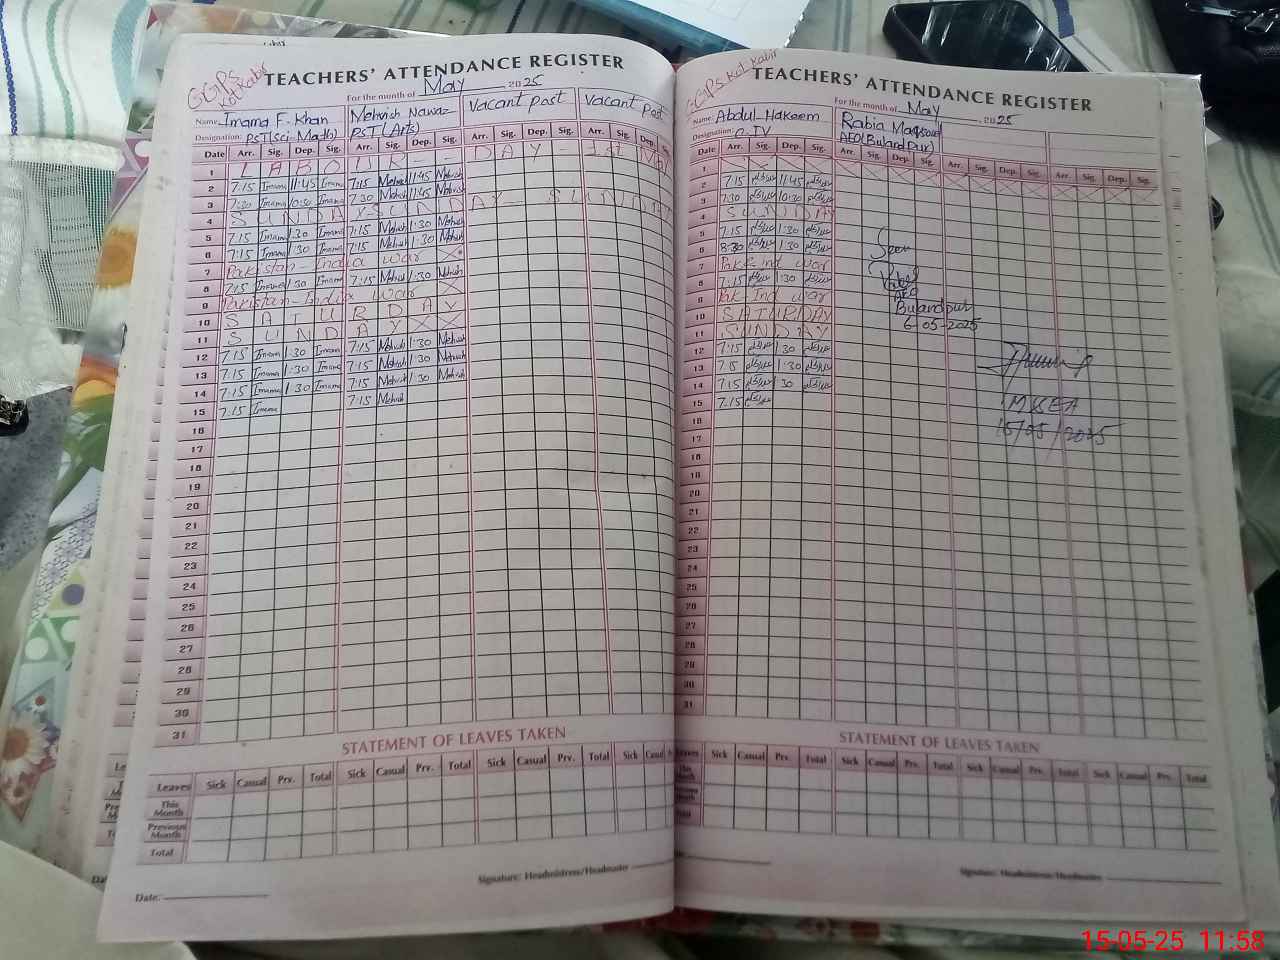 GGPS
Kot Kabir
TEACHERS' ATTENDANCE REGISTER
For the month of May 2025
Name: Imama F. Khan Mehvish Nawaz Vacant post Vacant post
Designation: PST(Sci-Math) PST (Arts)
Date Arr. Sig. Dep. Sig. Arr. Sig. Dep. Sig. Arr. Sig. Dep. Sig. Arr. Sig. Dep. Sig.
1 LABOUR - - DAY - 1st May
2 7:15 Imama 11:45 Imama 7:15 Mehvish 11:45 Mehvish
3 7:30 Imama 10:30 Imama 7:30 Mehvish 11:45 Mehvish
4 SUNDAY SUNDAY SUNDAY
5 7:15 Imama 1:30 Imama 7:15 Mehvish 1:30 Mehvish
6 7:15 Imama 1:30 Imama 7:15 Mehvish 1:30 Mehvish
7 Pakistan-India war X
8 7:15 Imama 1:30 Imama 7:15 Mehvish 1:30 Mehvish
9 Pakistan-India war X
10 SATURDAY
11 SUNDAY X X
12 7:15 Imama 1:30 Imama 7:15 Mehvish 1:30 Mehvish
13 7:15 Imama 1:30 Imama 7:15 Mehvish 1:30 Mehvish
14 7:15 Imama 1:30 Imama 7:15 Mehvish 1:30 Mehvish
15 7:15 Imama 7:15 Mehvish
16
17
18
19
20
21
22
23
24
25
26
27
28
29
30
31
STATEMENT OF LEAVES TAKEN
Leaves Sick Casual Prv. Total Sick Casual Prv. Total Sick Casual Prv. Total Sick Casual
This Month
Previous Month
Total
Signature: Headmistress/Headmaster
Date:
GGPS Kot Kabir
TEACHERS' ATTENDANCE REGISTER
For the month of May 2025
Name: Abdul Hakeem Rabia Maqsood
Designation: C-IV AEO(Buland Pur)
Date Arr. Sig. Dep. Sig. Arr. Sig. Dep. Sig. Arr. Sig. Dep. Sig. Arr. Sig. Dep. Sig.
1
2 7:15 11:45
3 7:30 10:30
4 SUNDAY
5 7:15 1:30
6 8:30 1:30
7 Pak-ind war
8 7:15 1:30
9 Pak-Ind war
10 SATURDAY
11 SUNDAY
12 7:15 1:30
13 7:15 1:30
14 7:15 1:30
15 7:15
16
17
18
19
20
21
22
23
24
25
26
27
28
29
30
31
Seen
AEO
Buland pur
6-05-2025
15/05/2025
STATEMENT OF LEAVES TAKEN
Leaves Sick Casual Prv. Total Sick Casual Prv. Total Sick Casual Prv. Total Sick Casual Prv. Total
Signature: Headmistress/Headmaster
15-05-25 11:58